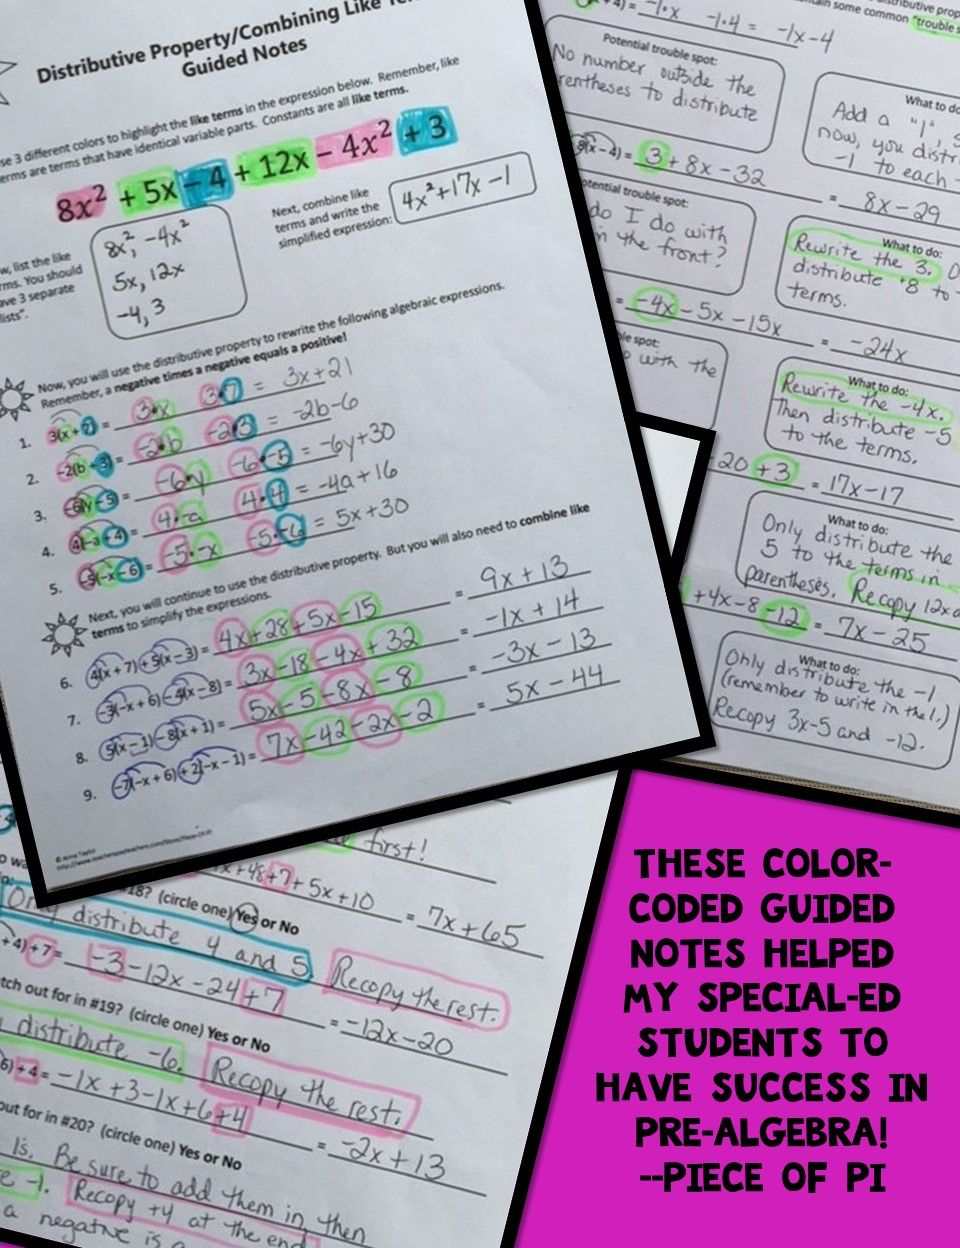 Distributive Property/Combining Like
Guided Notes
3 different colors to highlight the like terms in the expression below. Remember, like
terms are terms that have identical variable parts. Constants are all like terms.
8x² + 5x - 4 + 12x - 4x² + 3
list the like
You should
3 separate
lists".
8x², -4x²
5x, 12x
-4, 3
Next, combine like
terms and write the
simplified expression:
4x²+17x-1
Now, you will use the distributive property to rewrite the following algebraic expressions.
Remember, a negative times a negative equals a positive!
1. 3(x + 7) = 3•x 3•7 = 3x+21
2. -2(b + 3) = -2•b -2•3 = -2b-6
3. -6(y - 5) = -6•y -6•-5 = -6y+30
4. 4(-a + 4) = 4•-a 4•4 = -4a+16
5. -5(-x - 6) = -5•-x -5•-6 = 5x+30
Next, you will continue to use the distributive property. But you will also need to combine like
terms to simplify the expressions.
6. 4(x + 7) + 5(x - 3) = 4x+28+5x-15 = 9x+13
7. -3(-x + 6) - 4(x - 8) = 3x-18-4x+32 = -1x+14
8. 5(x - 1) - 8(x + 1) = 5x-5-8x-8 = -3x-13
9. -7(-x + 6) + 2(-x - 1) = 7x-42-2x-2 = 5x-44
© Anna Taylor
+4) = -1•x -1•4 = -1x-4
some common "trouble
Potential trouble spot:
No number outside the
to distribute
What to do
Add a "1",
now, you
-1 to each
(x - 4) = 3 + 8x - 32
= 8x-29
trouble spot:
do I do with
the front?
What to do:
Rewrite the 3.
distribute +8 to
terms.
= -4x - 5x - 15x
= -24x
spot:
with the
What to do:
Rewrite the -4x.
Then distribute -5
to the terms.
-20 +3 = 17x-17
What to do:
Only distribute the
5 to the terms in
parentheses. Recopy 12x
+4x-8-12 = 7x-25
What to do:
Only distribute the -1
(remember to write in the 1.)
Recopy 3x-5 and -12.
first!
+48+7+5x+10 = 7x+65
18? (circle one) Yes or No
Only distribute 4 and 5
Recopy the rest.
+4)+7= -3-12x-24+7 = -12x-20
out for in #19? (circle one) Yes or No
distribute -6. Recopy the rest.
6)+4= -1x+3-1x+6+4 = -2x+13
out for in #20? (circle one) Yes or No
1's. Be sure to add them in, then
-1. Recopy +4 at the end
a negative is a
THESE COLOR-
CODED GUIDED
NOTES HELPED
MY SPECIAL-ED
STUDENTS TO
HAVE SUCCESS IN
PRE-ALGEBRA!
--PIECE OF PI